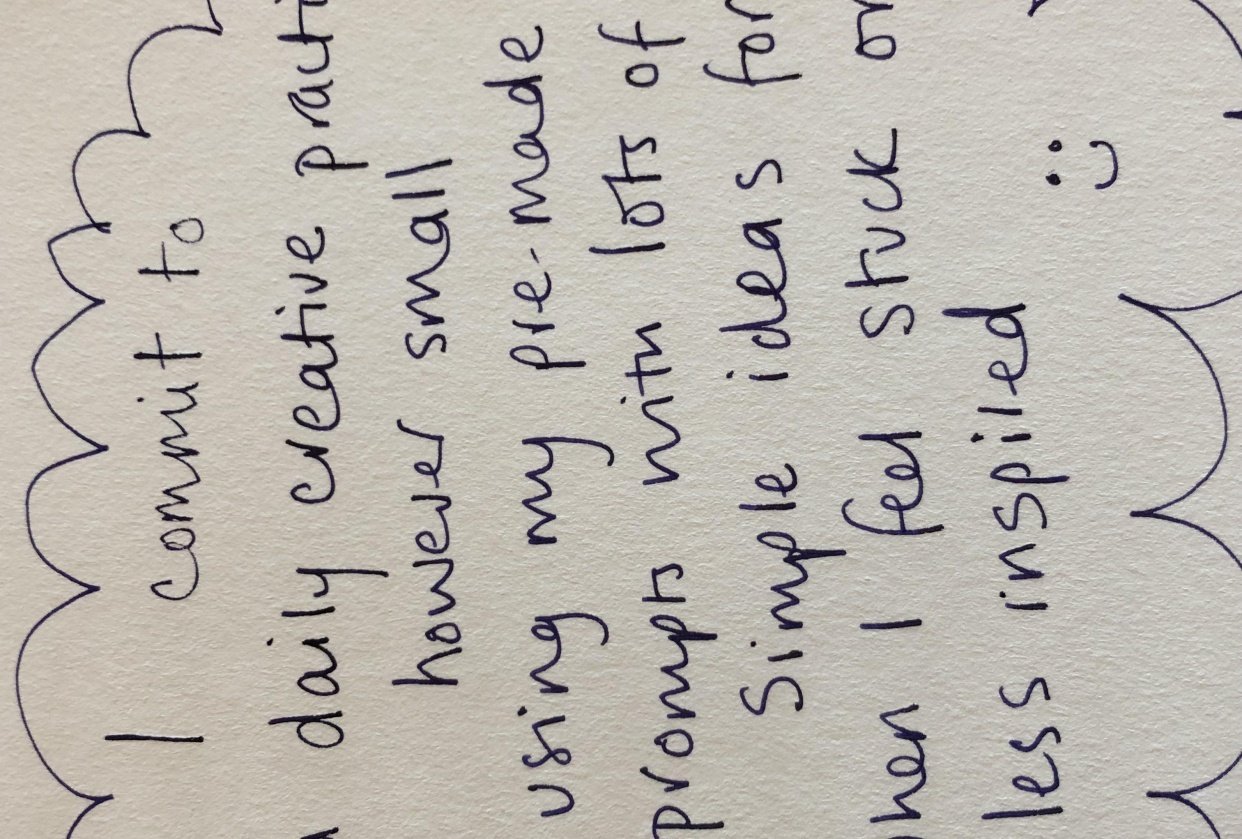 I commit to
daily creative practi
however small
using my pre-made
prompts with lots of
simple ideas for
hen I feel stuck or
less inspired :)